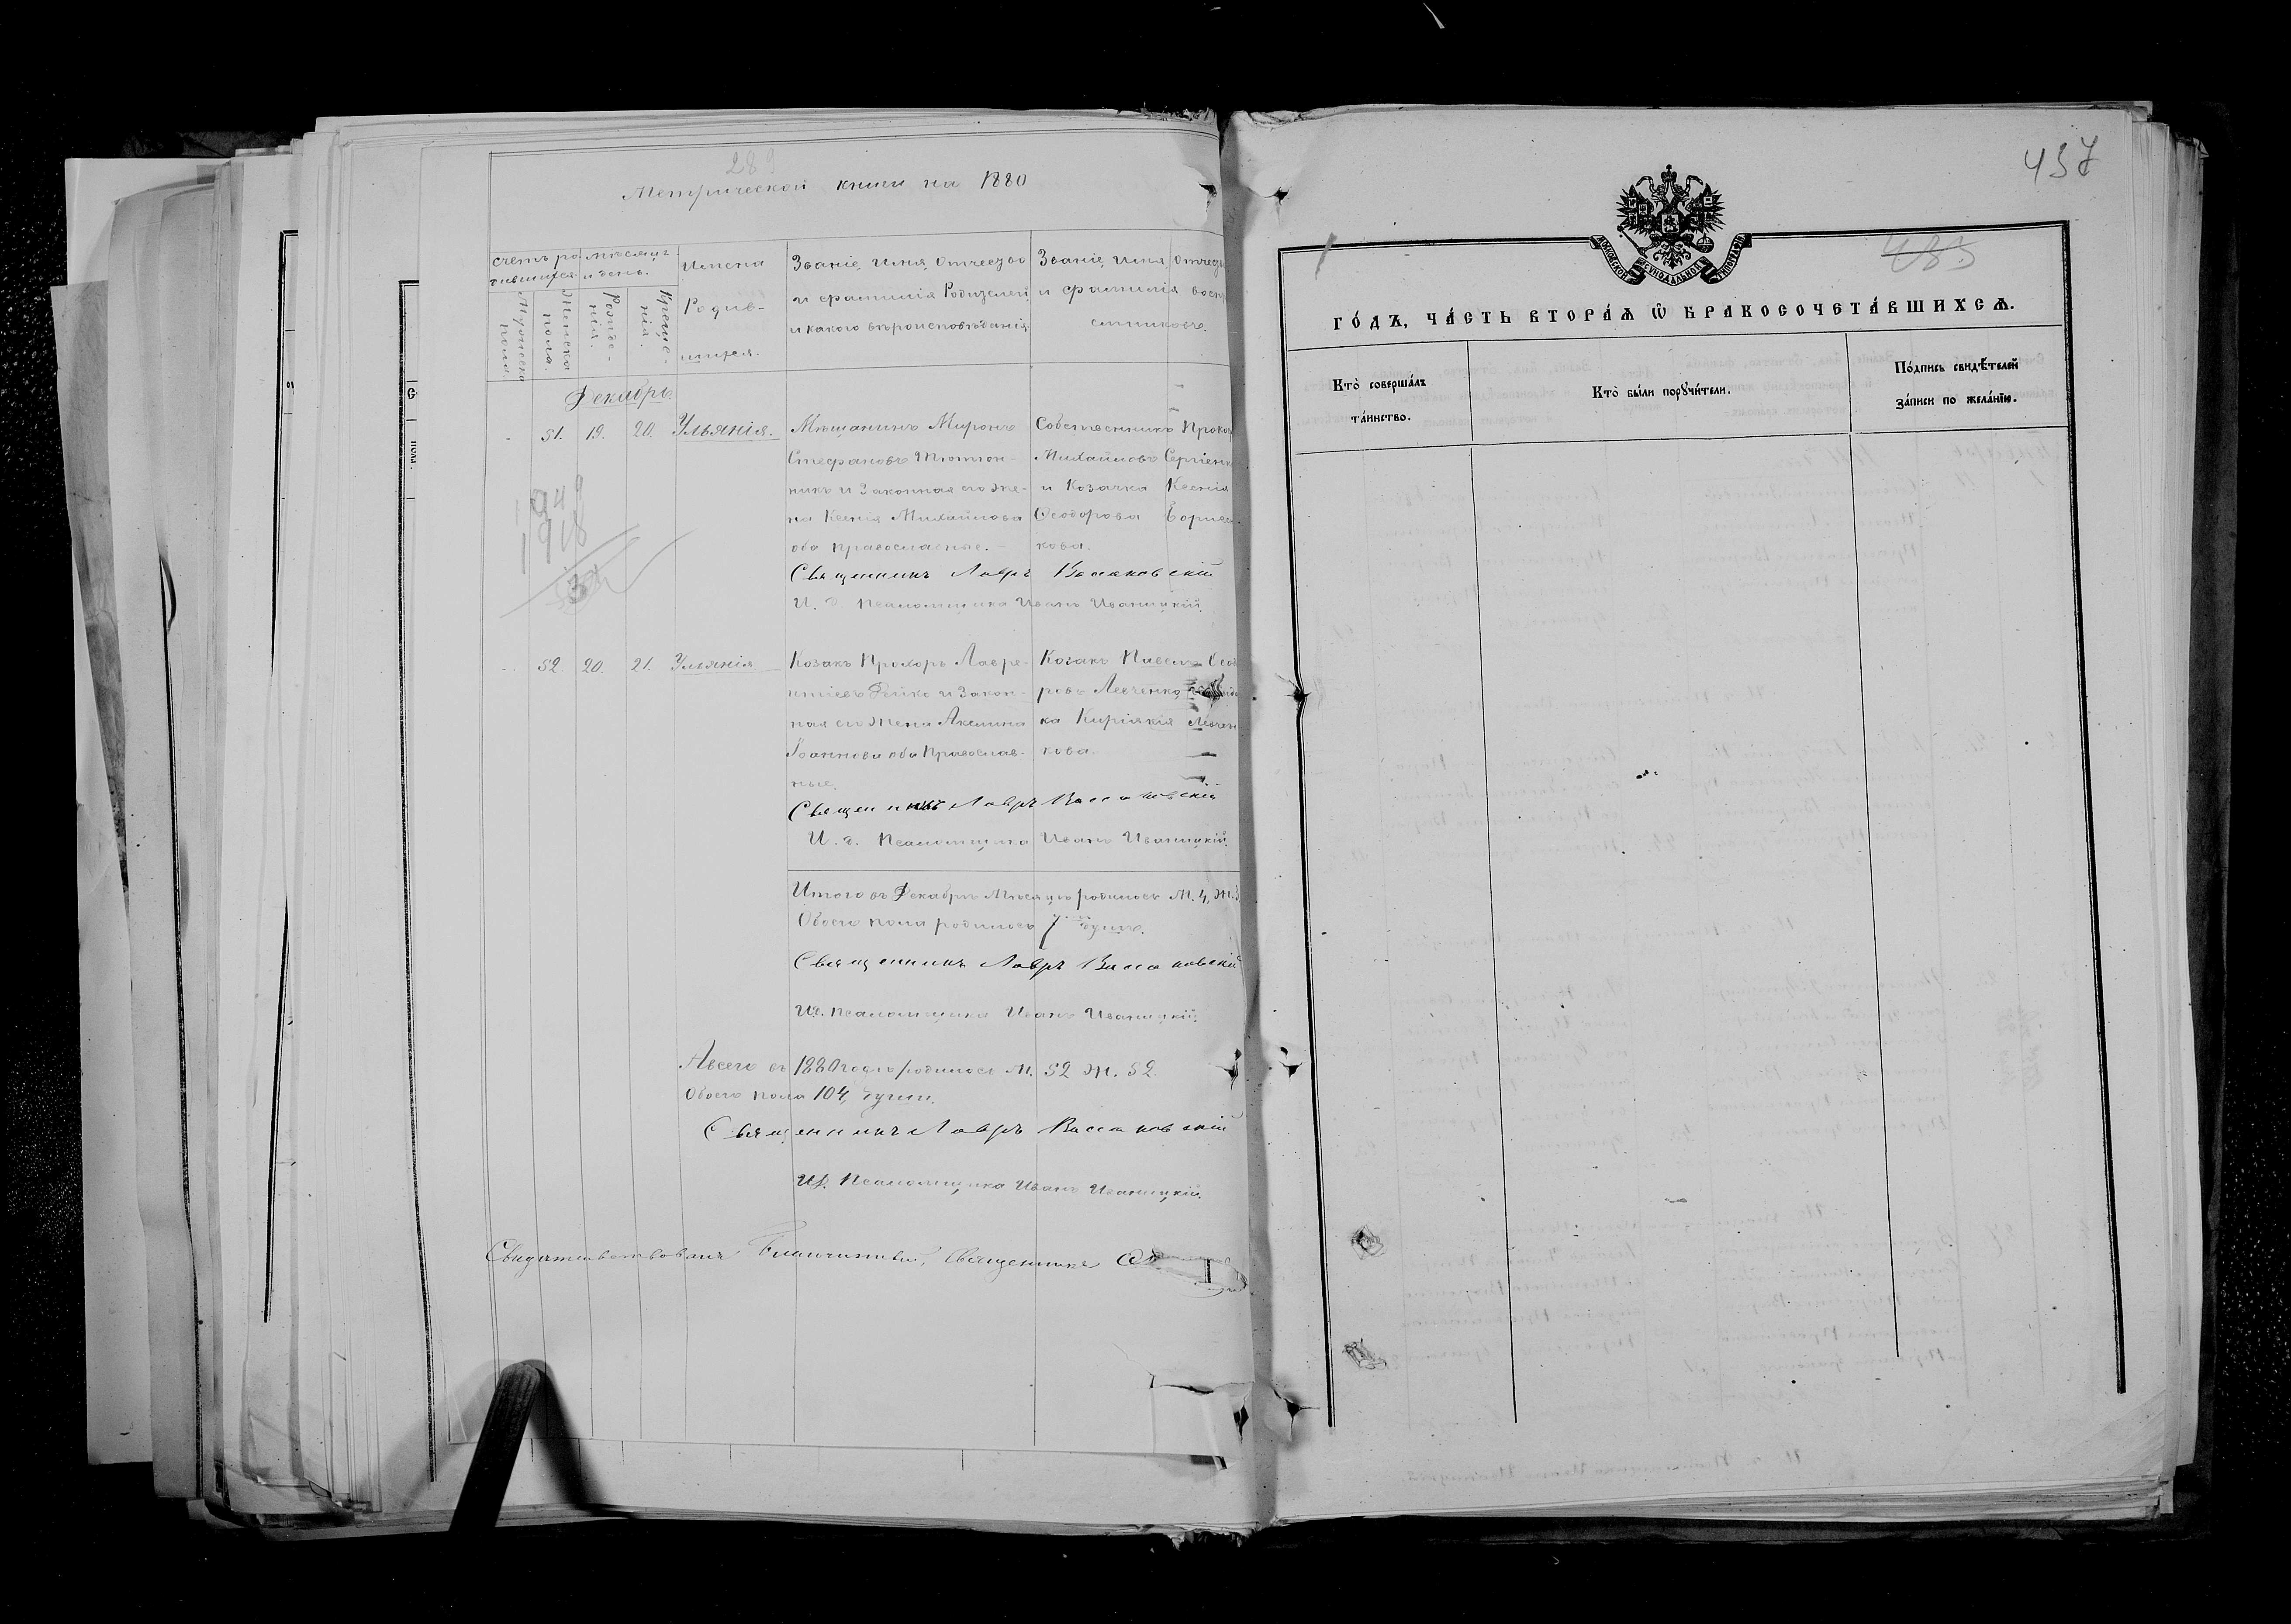 289
Метрической книги на 1880
счетъ ро- дившихся
мѣсяцъ и день.
Мужеска пола.
Женска пола.
Рожде- нія.
Креще- нія.
Имена
Родив-
шихся.
Званіе, Имя, Отчество
и фамилія Родителей
и какого вѣроисповѣданія.
Званіе, Имя, Отчест
и фамилія восп
емниковъ.
Декабрь
51. 19. 20. Ульянія.
Мѣщанинъ Миронъ
Стефановъ Тютюн-
никъ и Законная его же-
на Ксенія Михайлова
оба православные.
Собственникъ Прокоп
Михайловъ Сергіенк
и Козачка Ксенія
Ѳеодорова Борисен-
кова.
Священникъ Лавръ
И. д. Псаломщика Иванъ Иваницкій.
1948
1918
52. 20. 21. Ульянія
Козакъ Прохоръ Лавре-
нтіевъ Рейко и Закон-
ная его Жена Акилина
Іоаннова оба Православ-
ные.
Козакъ Павелъ Ѳеод
ровъ Левченко,
ка Киріякія Левчен
кова.
Священникъ Лавръ
И. д. Псаломщика Иванъ Иваницкій.
Итого въ Декабрѣ Мѣсяцѣ родилось М. 4, Ж. 3
Обоего пола родилось 7 душъ.
Священникъ Лавръ
И.д. Псаломщика Иванъ Иваницкій.
Авсего въ 1880 годѣ родилось М. 52 Ж. 52.
Обоего пола 104, души.
Священникъ Лавръ
И.д. Псаломщика Иванъ Иваницкій.
Священникъ
457
483
МОСКОВСКОЙ СѴНОДАЛЬНОЙ ТИПОГРАФІИ
ГО́ДЪ, ЧА́СТЬ ВТОРА́Ѧ Ѽ БРАКОСОЧЕТА́ВШИХСѦ.
Кто̀ соверша́лъ
та́инство.
Кто̀ бы́ли порꙋчи́тели.
По́дпись свидѣ́телей
за́писи по жела́нїю.